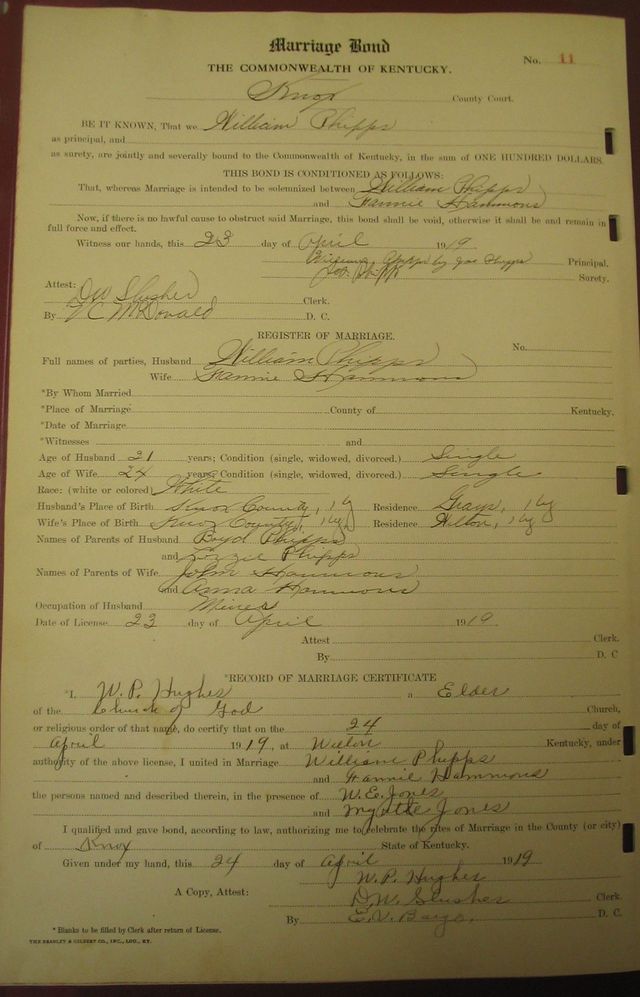 Marriage Bond
No. 11
THE COMMONWEALTH OF KENTUCKY.
Knox County Court.
BE IT KNOWN, That we William Phipps
as principal, and
as surety, are jointly and severally bound to the Commonwealth of Kentucky, in the sum of ONE HUNDRED DOLLARS.
THIS BOND IS CONDITIONED AS FOLLOWS:
That, whereas Marriage is intended to be solemnized between William Phipps
and Fannie Hammons
Now, if there is no lawful cause to obstruct said Marriage, this bond shall be void, otherwise it shall be and remain in
full force and effect.
Witness our hands, this 23 day of April 1919
William Phipps by Joe Phipps Principal.
Joe Phipps Surety.
Attest:
DW Slusher Clerk.
By McDonald D. C.
REGISTER OF MARRIAGE.
No.
Full names of parties, Husband William Phipps
Wife Fannie Hammons
*By Whom Married
*Place of Marriage County of Kentucky.
*Date of Marriage
*Witnesses and
Age of Husband 21 years; Condition (single, widowed, divorced.) Single
Age of Wife 24 years; Condition (single, widowed, divorced.) Single
Race: (white or colored) White
Husband's Place of Birth Knox County, Ky Residence Grays, Ky
Wife's Place of Birth Knox County, Ky Residence Wilton, Ky
Names of Parents of Husband Boyd Phipps
and Lizzie Phipps
Names of Parents of Wife John Hammons
and Anna Hammons
Occupation of Husband Miner
Date of License 23 day of April 1919
Attest Clerk.
By D. C
*RECORD OF MARRIAGE CERTIFICATE
*I, W. P. Hughes a Elder
of the Church of God Church,
or religious order of that name, do certify that on the 24 day of
April 1919, at Wilton Kentucky, under
authority of the above license, I united in Marriage William Phipps
and Fannie Hammons
the persons named and described therein, in the presence of W. E. Jones
and Myrtle Jones
I qualified and gave bond, according to law, authorizing me to celebrate the rites of Marriage in the County (or city)
of Knox State of Kentucky.
Given under my hand, this 24 day of April 1919
W. P. Hughes
A Copy, Attest: D. W. Slusher Clerk.
By E. V. D. C.
* Blanks to be filled by Clerk after return of License.
THE BRADLEY & GILBERT CO., INC., LOU., KY.